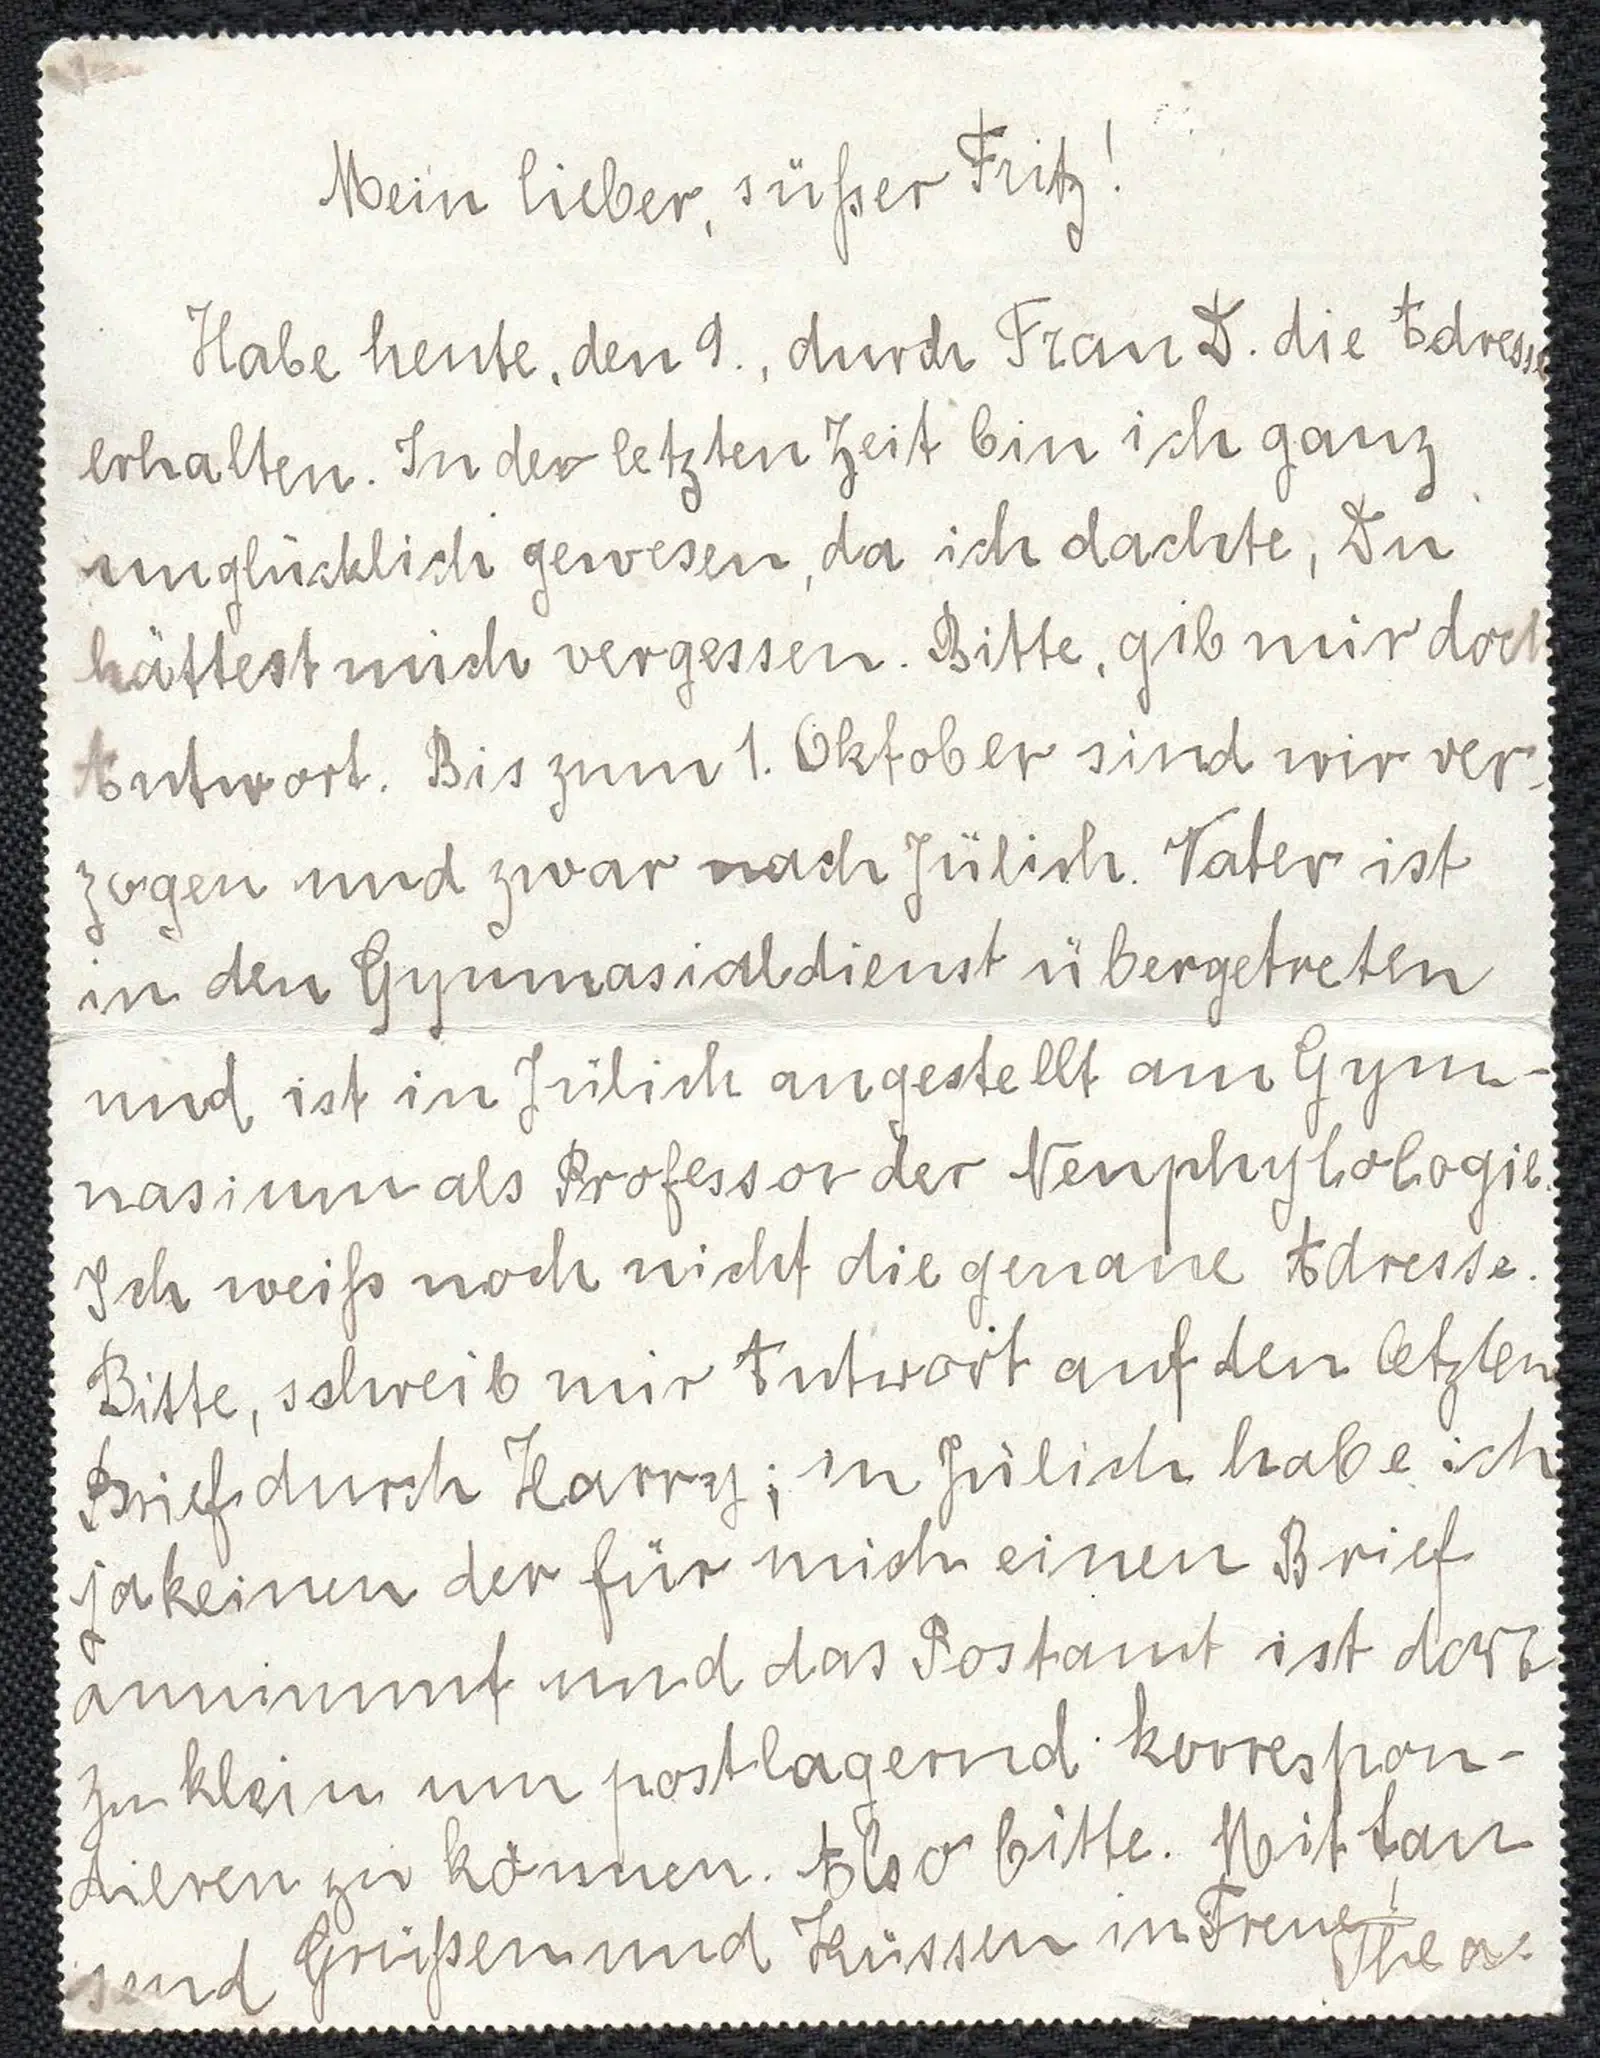 Mein lieber, süßer Fritz!
Habe heute, den 9., durch Frau D. die Adresse
erhalten. In der letzten Zeit bin ich ganz
unglücklich gewesen, da ich dachte, Du
hättest mich vergessen. Bitte, gib mir doch
Antwort. Bis zum 1. Oktober sind wir ver-
zogen und zwar nach Jülich. Vater ist
in den Gymnasialdienst übergetreten
und ist in Jülich angestellt am Gym-
nasium als Professor der Neuphylologie.
Ich weiß noch nicht die genaue Adresse.
Bitte, schreib mir Antwort auf den letzten
Brief durch Harry; in Jülich habe ich
ja keinen der für mich einen Brief
annimmt und das Postamt ist dort
zu klein um postlagernd korrespon-
dieren zu können. Also bitte. Mit tau
send Grüßen und Küssen in Treue!
Thea.